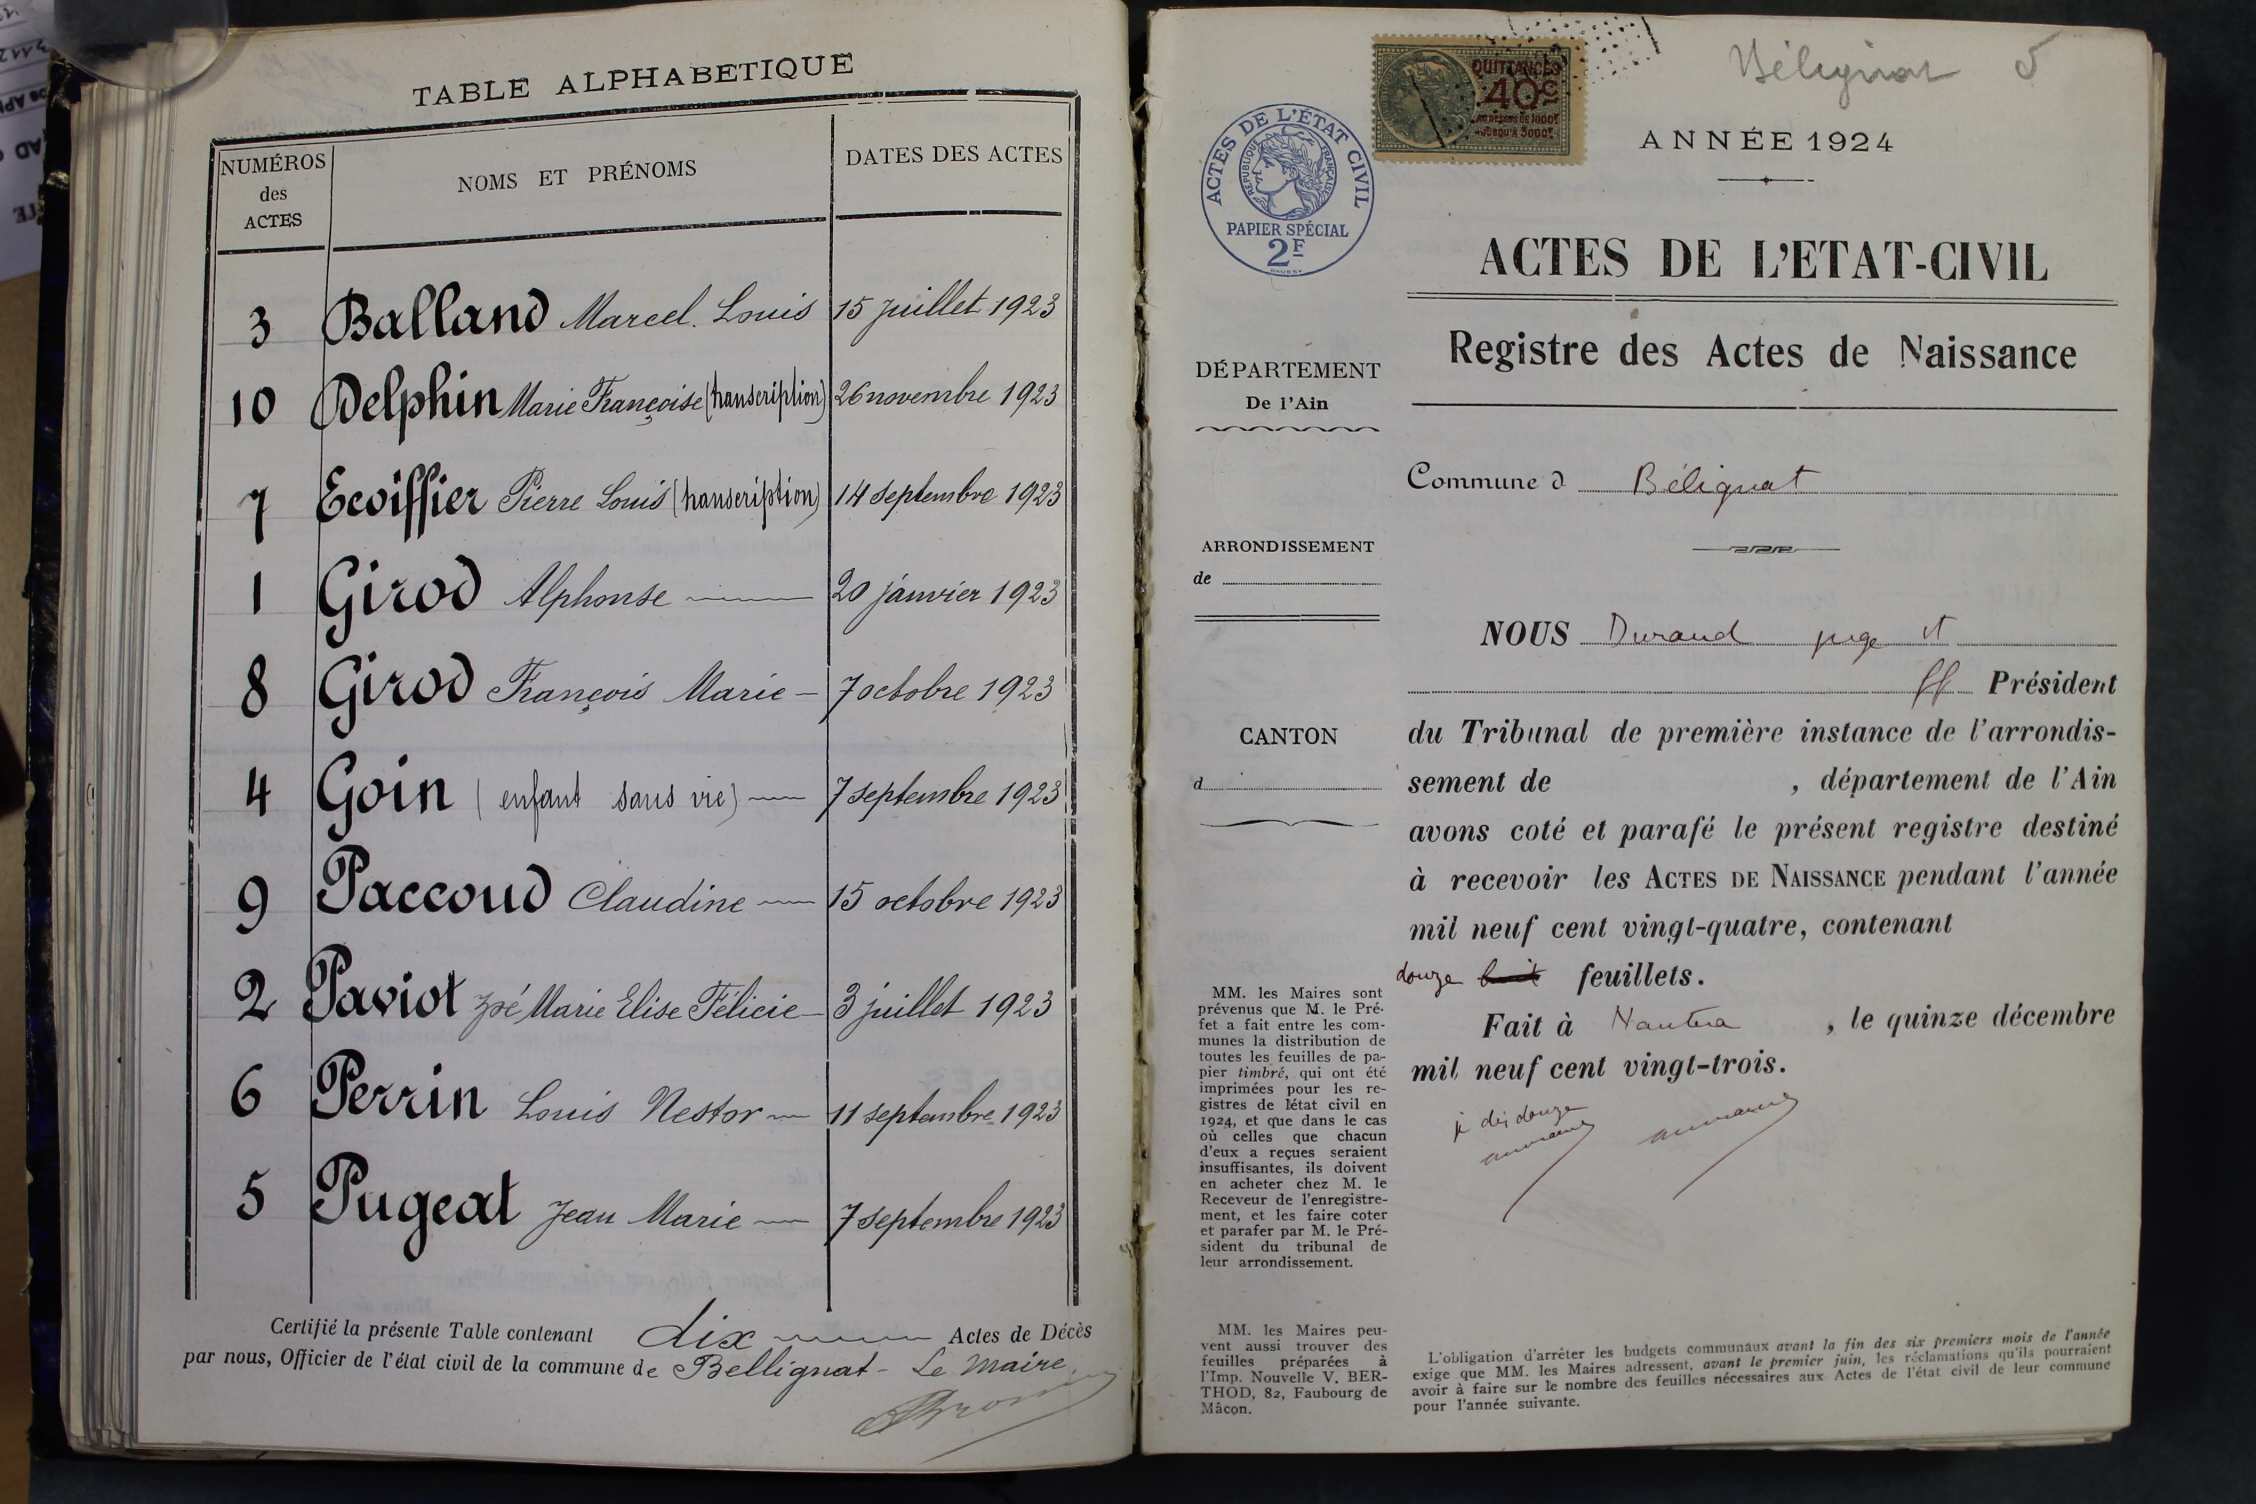 TABLE ALPHABETIQUE
NUMÉROS des ACTES
NOMS ET PRÉNOMS
DATES DES ACTES
3 Balland Marcel. Louis 15 juillet 1923
10 Delphin Marie Françoise (transcription) 26 novembre 1923
7 Ecoiffier Pierre Louis (transcription) 14 septembre 1923
1 Girod Alphonse 20 janvier 1923
8 Girod François Marie 7 octobre 1923
4 Goin (enfant sans vie) 7 septembre 1923
9 Paccoud Claudine 15 octobre 1923
2 Paviot Zoé Marie Elise Félicie 3 juillet 1923
6 Perrin Louis Nestor 11 septembre 1923
5 Pugeat Jean Marie 7 septembre 1923
Certifié la présente Table contenant dix Actes de Décès
par nous, Officier de l'état civil de la commune de Bellignat - Le Maire
Bélignat 5
QUITTANCES
40c
ACTES DE L'ÉTAT CIVIL
RÉPUBLIQUE FRANÇAISE
PAPIER SPÉCIAL
2F
ANNÉE 1924
ACTES DE L'ETAT-CIVIL
Registre des Actes de Naissance
DÉPARTEMENT
De l'Ain
Commune d Bélignat
ARRONDISSEMENT
de
NOUS Durand juge et
ff Président
CANTON
d
du Tribunal de première instance de l'arrondis-
sement de , département de l'Ain
avons coté et parafé le présent registre destiné
à recevoir les ACTES DE NAISSANCE pendant l'année
mil neuf cent vingt-quatre, contenant
douze huit feuillets.
Fait à Nantua , le quinze décembre
mil neuf cent vingt-trois.
je dis douze
MM. les Maires sont
prévenus que M. le Pré-
fet a fait entre les com-
munes la distribution de
toutes les feuilles de pa-
pier timbré, qui ont été
imprimées pour les re-
gistres de l'état civil en
1924, et que dans le cas
où celles que chacun
d'eux a reçues seraient
insuffisantes, ils doivent
en acheter chez M. le
Receveur de l'enregistre-
ment, et les faire coter
et parafer par M. le Pré-
sident du tribunal de
leur arrondissement.
MM. les Maires peu-
vent aussi trouver des
feuilles préparées à
l'Imp. Nouvelle V. BER-
THOD, 82, Faubourg de
Mâcon.
L'obligation d'arrêter les budgets communaux avant la fin des six premiers mois de l'année
exige que MM. les Maires adressent, avant le premier juin, les réclamations qu'ils pourraient
avoir à faire sur le nombre des feuilles nécessaires aux Actes de l'état civil de leur commune
pour l'année suivante.